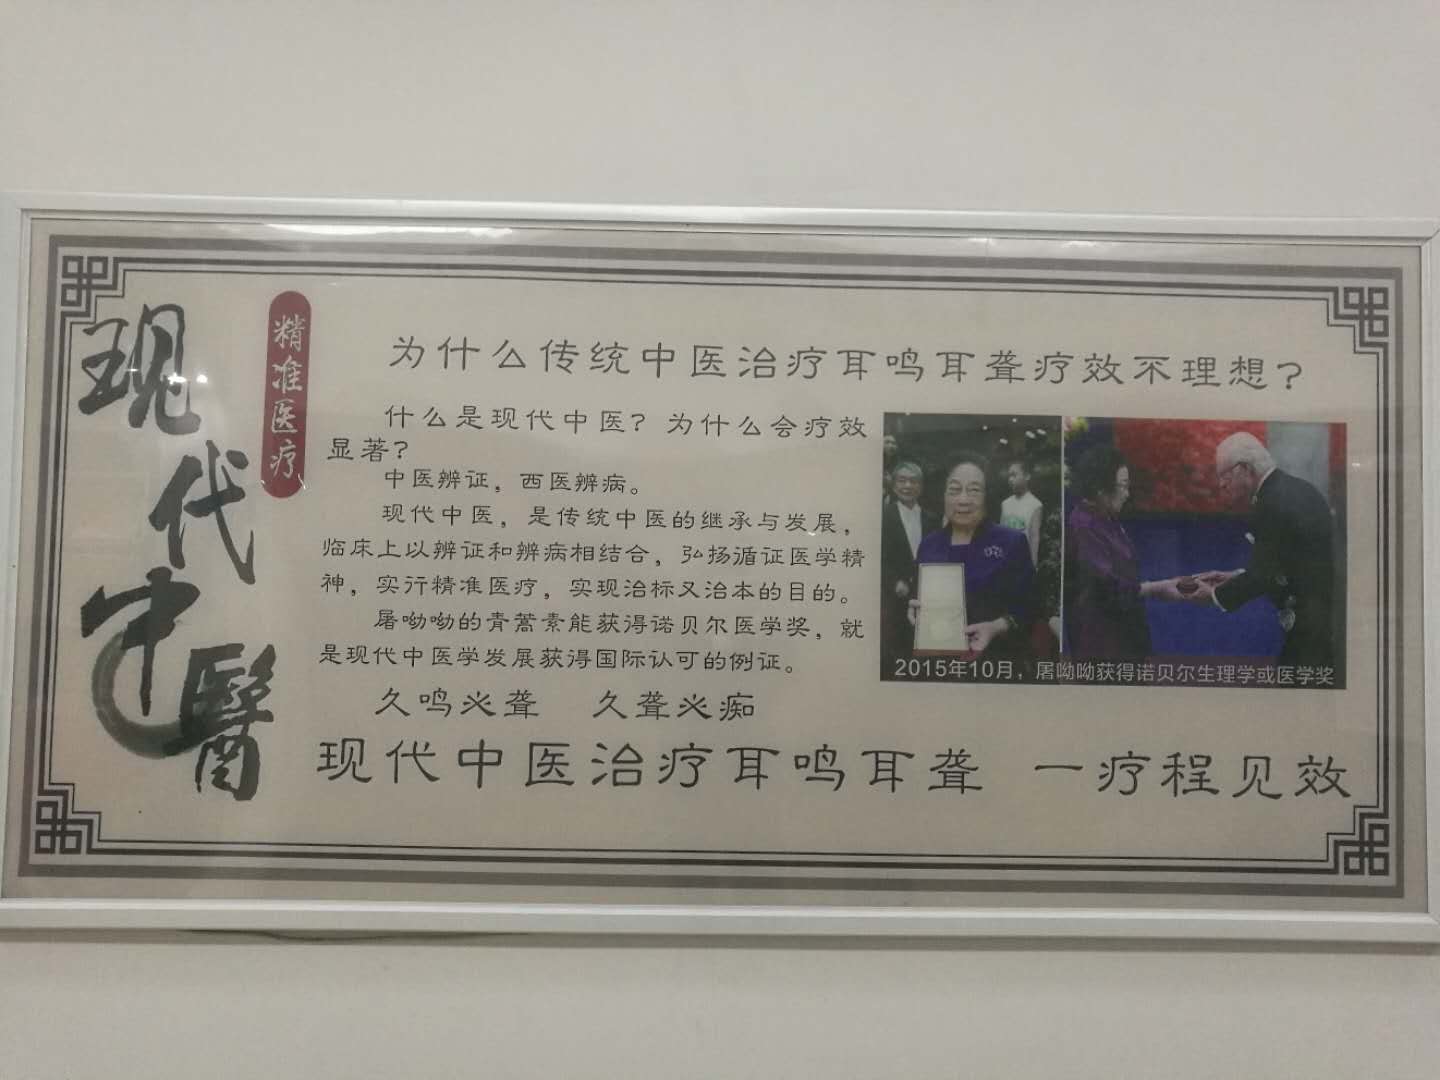 现代中醫
精准医疗
为什么传统中医治疗耳鸣耳聋疗效不理想?
什么是现代中医?为什么会疗效
显著?
中医辨证，西医辨病。
现代中医，是传统中医的继承与发展，
临床上以辨证和辨病相结合，弘扬循证医学精
神，实行精准医疗，实现治标又治本的目的。
屠呦呦的青蒿素能获得诺贝尔医学奖，就
是现代中医学发展获得国际认可的例证。
久鸣必聋 久聋必痴
现代中医治疗耳鸣耳聋 一疗程见效
2015年10月，屠呦呦获得诺贝尔生理学或医学奖